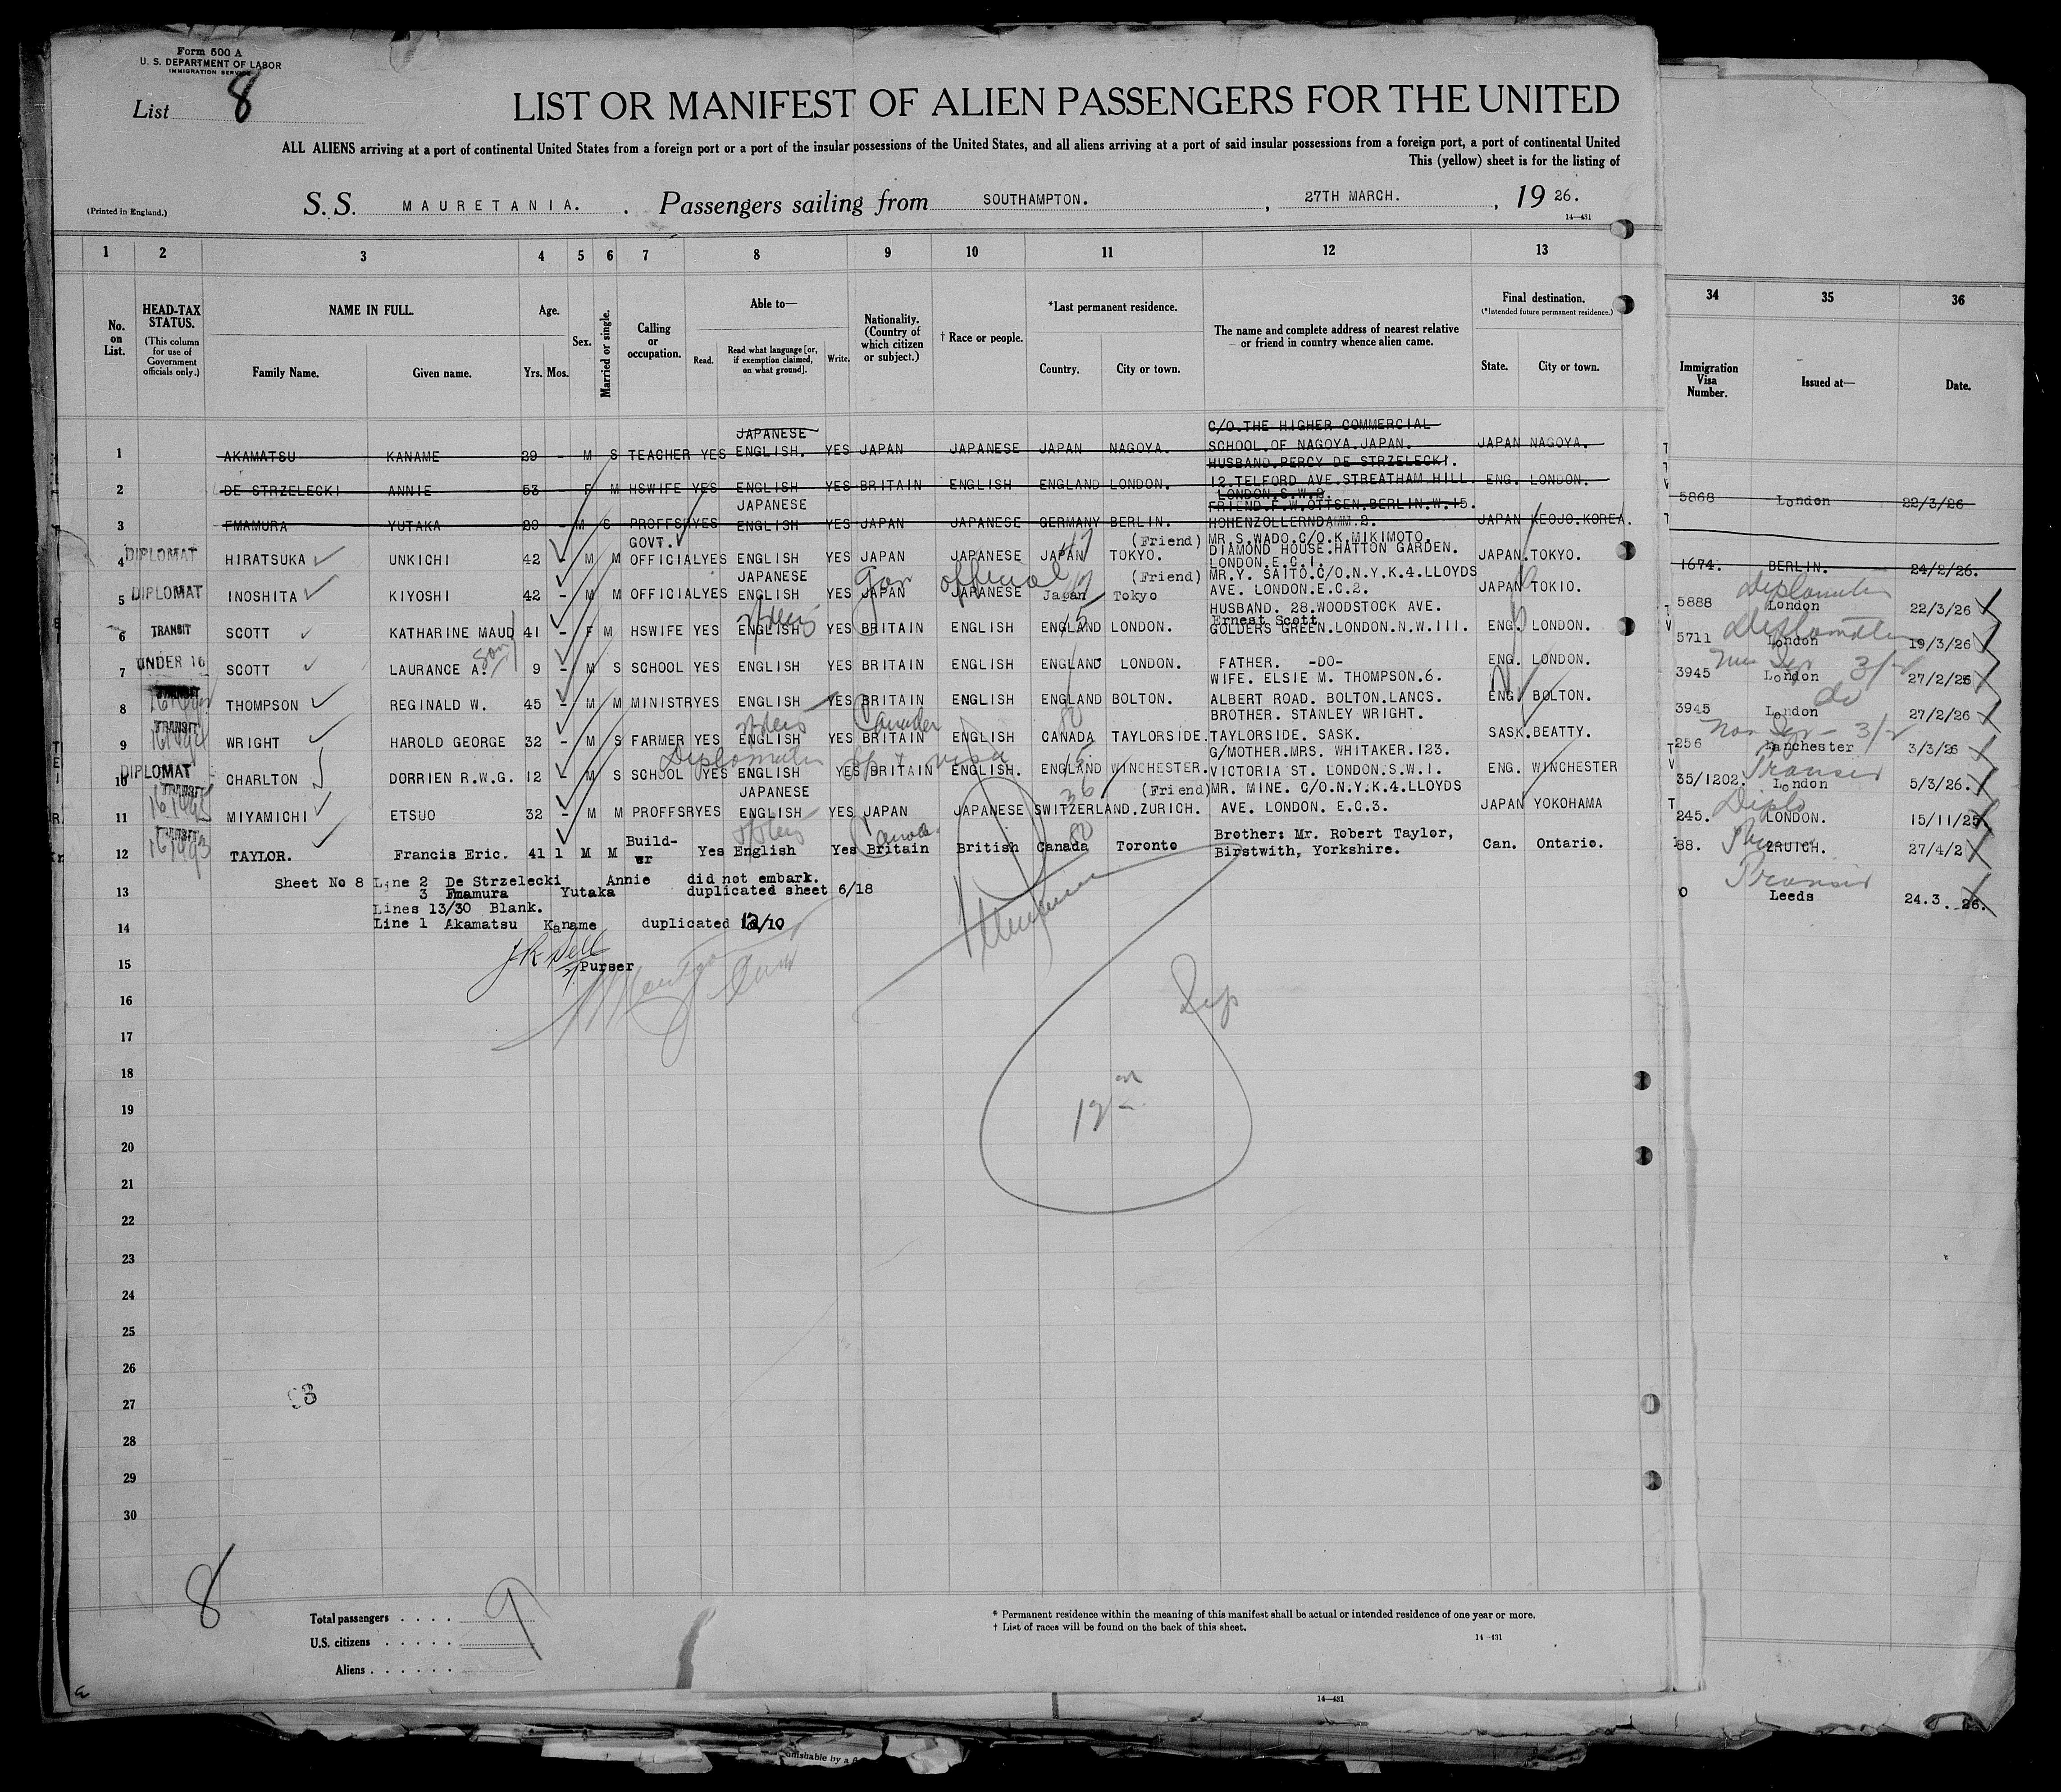 Form 500 A
U. S. DEPARTMENT OF LABOR
IMMIGRATION SERVICE
List 8
LIST OR MANIFEST OF ALIEN PASSENGERS FOR THE UNITED
ALL ALIENS arriving at a port of continental United States from a foreign port or a port of the insular possessions of the United States, and all aliens arriving at a port of said insular possessions from a foreign port, a port of continental United
This (yellow) sheet is for the listing of
(Printed in England.)
S.S. MAURETANIA. Passengers sailing from SOUTHAMPTON. , 27TH MARCH. , 19 26.
14—431
1 2 3 4 5 6 7 8 9 10 11 12 13
34 35 36
No. on List.
HEAD-TAX STATUS.
(This column for use of Government officials only.)
NAME IN FULL.
Family Name. Given name.
Age.
Yrs. Mos.
Sex.
Married or single.
Calling or occupation.
Able to—
Read. Read what language [or, if exemption claimed, on what ground]. Write.
Nationality. (Country of which citizen or subject.)
† Race or people.
*Last permanent residence.
Country. City or town.
The name and complete address of nearest relative or friend in country whence alien came.
Final destination.
(*Intended future permanent residence.)
State. City or town.
Immigration Visa Number. Issued at— Date.
JAPANESE C/O.THE HIGHER COMMERCIAL
1 AKAMATSU KANAME 29 - M S TEACHER YES ENGLISH. YES JAPAN JAPANESE JAPAN NAGOYA. SCHOOL.OF NAGOYA.JAPAN. JAPAN NAGOYA.
HUSBAND.PERCY DE STRZELECKI.
2 DE STRZELECKI ANNIE 53 - F M HSWIFE YES ENGLISH YES BRITAIN ENGLISH ENGLAND LONDON. 12.TELFORD AVE.STREATHAM HILL. ENG. LONDON.
LONDON.S.W.2.
5868 London 22/3/26
JAPANESE FRIEND.F.W.OTTSEN.BERLIN.W.15.
3 FMAMURA YUTAKA 29 - M S PROFFSR YES ENGLISH YES JAPAN JAPANESE GERMANY BERLIN. HOHENZOLLERNDAMM.2. JAPAN KEOJO.KOREA.
1674. BERLIN. 24/2/26.
GOVT. (Friend) MR.S.WADO.C/O.K.MIKIMOTO.
4 DIPLOMAT HIRATSUKA UNKICHI 42 - M M OFFICIAL YES ENGLISH YES JAPAN JAPANESE JAPAN TOKYO. DIAMOND HOUSE.HATTON GARDEN. JAPAN TOKYO.
LONDON.E.C.1.
5888 London 22/3/26
JAPANESE (Friend) MR.Y. SAITO.C/O.N.Y.K.4.LLOYDS
5 DIPLOMAT INOSHITA KIYOSHI 42 - M M OFFICIAL YES ENGLISH YES JAPAN JAPANESE Japan Tokyo AVE. LONDON.E.C.2. JAPAN TOKIO.
official
5711 London 19/3/26
HUSBAND. 28.WOODSTOCK AVE.
Ernest Scott
6 TRANSIT SCOTT KATHARINE MAUD 41 - F M HSWIFE YES ENGLISH YES BRITAIN ENGLISH ENGLAND LONDON. GOLDERS GREEN.LONDON.N.W.111. ENG. LONDON.
3945 London 27/2/26
7 UNDER 16 SCOTT LAURANCE A. son 9 - M S SCHOOL YES ENGLISH YES BRITAIN ENGLISH ENGLAND LONDON. FATHER. -DO- ENG. LONDON.
3945 London 27/2/26
do
WIFE. ELSIE M. THOMPSON.6.
8 TRANSIT THOMPSON REGINALD W. 45 - M M MINISTR YES ENGLISH YES BRITAIN ENGLISH ENGLAND BOLTON. ALBERT ROAD. BOLTON.LANCS. ENG. BOLTON.
256 Manchester 3/3/26
BROTHER. STANLEY WRIGHT.
9 TRANSIT WRIGHT HAROLD GEORGE 32 - M S FARMER YES ENGLISH YES BRITAIN ENGLISH CANADA TAYLORSIDE. TAYLORSIDE. SASK. SASK. BEATTY.
Canada
35/1202. London 5/3/26.
Transit
G/MOTHER.MRS. WHITAKER.123.
10 DIPLOMAT CHARLTON DORRIEN R.W.G. 12 - M S SCHOOL YES ENGLISH YES BRITAIN ENGLISH. ENGLAND WINCHESTER. VICTORIA ST. LONDON.S.W.1. ENG. WINCHESTER
visa
245. LONDON. 15/11/25
Diplo
JAPANESE (Friend) MR. MINE. C/O.N.Y.K.4.LLOYDS
11 TRANSIT MIYAMICHI ETSUO 32 - M M PROFFSR YES ENGLISH YES JAPAN JAPANESE SWITZERLAND.ZURICH. AVE. LONDON. E.C.3. JAPAN YOKOHAMA
88. ZRUICH. 27/4/2
Build- Brother: Mr. Robert Taylor,
12 TRANSIT TAYLOR. Francis Eric. 41 1 M M er Yes English Yes Britain British Canada Toronto Birstwith, Yorkshire. Can. Ontario.
Canada
0 Leeds 24.3.26.
Transit
Sheet No 8 Line 2 De Strzelecki Annie did not embark.
13 3 Fmamura Yutaka duplicated sheet 6/18
Lines 13/30 Blank.
14 Line 1 Akamatsu Kaname duplicated 12/10
15 Purser
16
17
18
19
20
21
22
23
24
25
26
27
28
29
30
8
Total passengers . . . . 9
U.S. citizens . . . . .
Aliens . . . . . .
* Permanent residence within the meaning of this manifest shall be actual or intended residence of one year or more.
† List of races will be found on the back of this sheet.
14—431
14—431